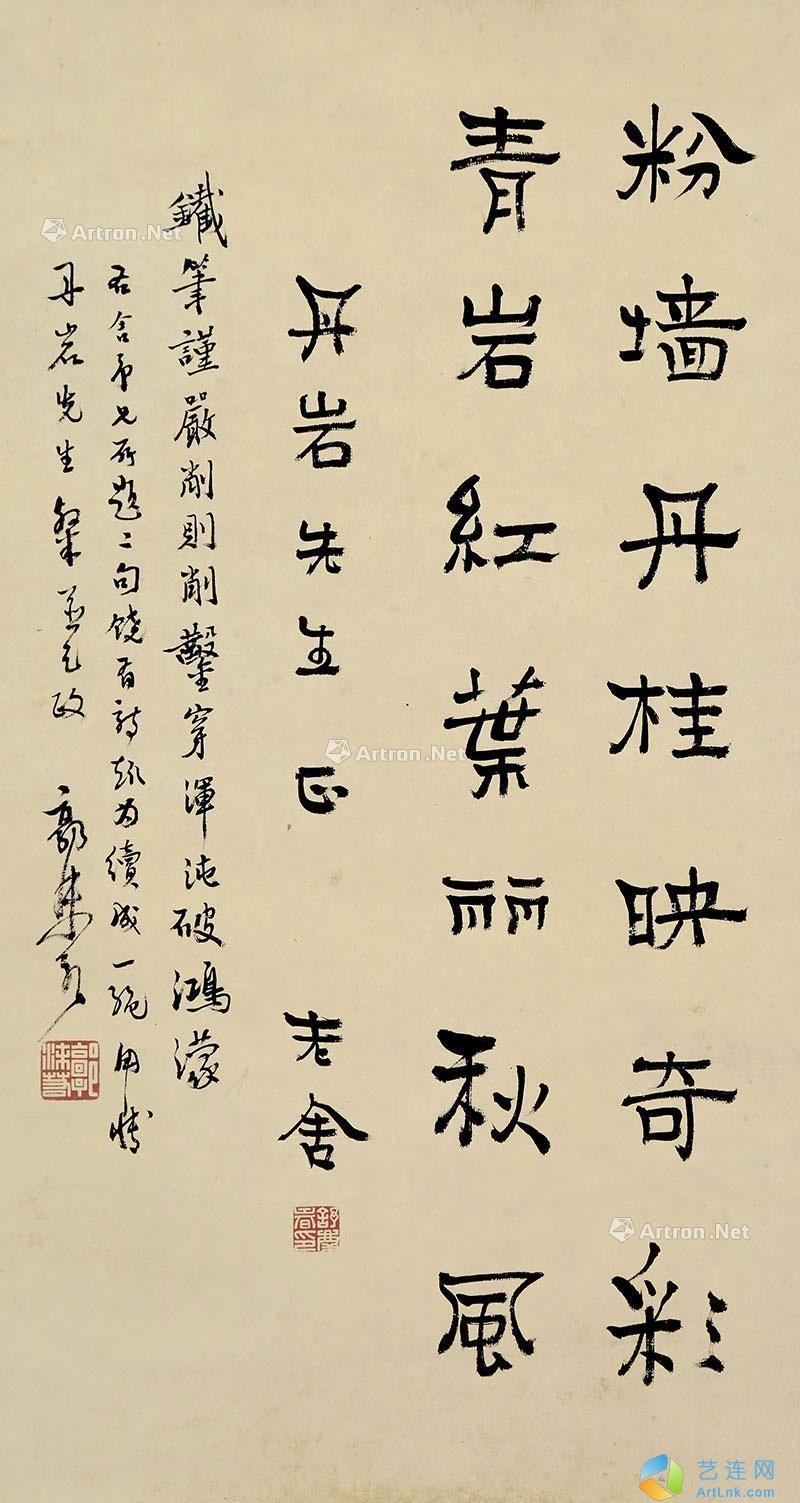 粉墙丹桂映奇彩
青岩紅葉丽秋風
丹岩先生正 老舍
舒慶春印
鐵筆謹嚴削則削鑿穿渾沌破鴻濛
右舍予兄所題二句饒有詩趣为續成一絕用博
丹岩先生粲並乞政 郭沫若
郭沫若
Artron.Net
Artron.Net
Artron.Net
艺连网
ArtLnk.com